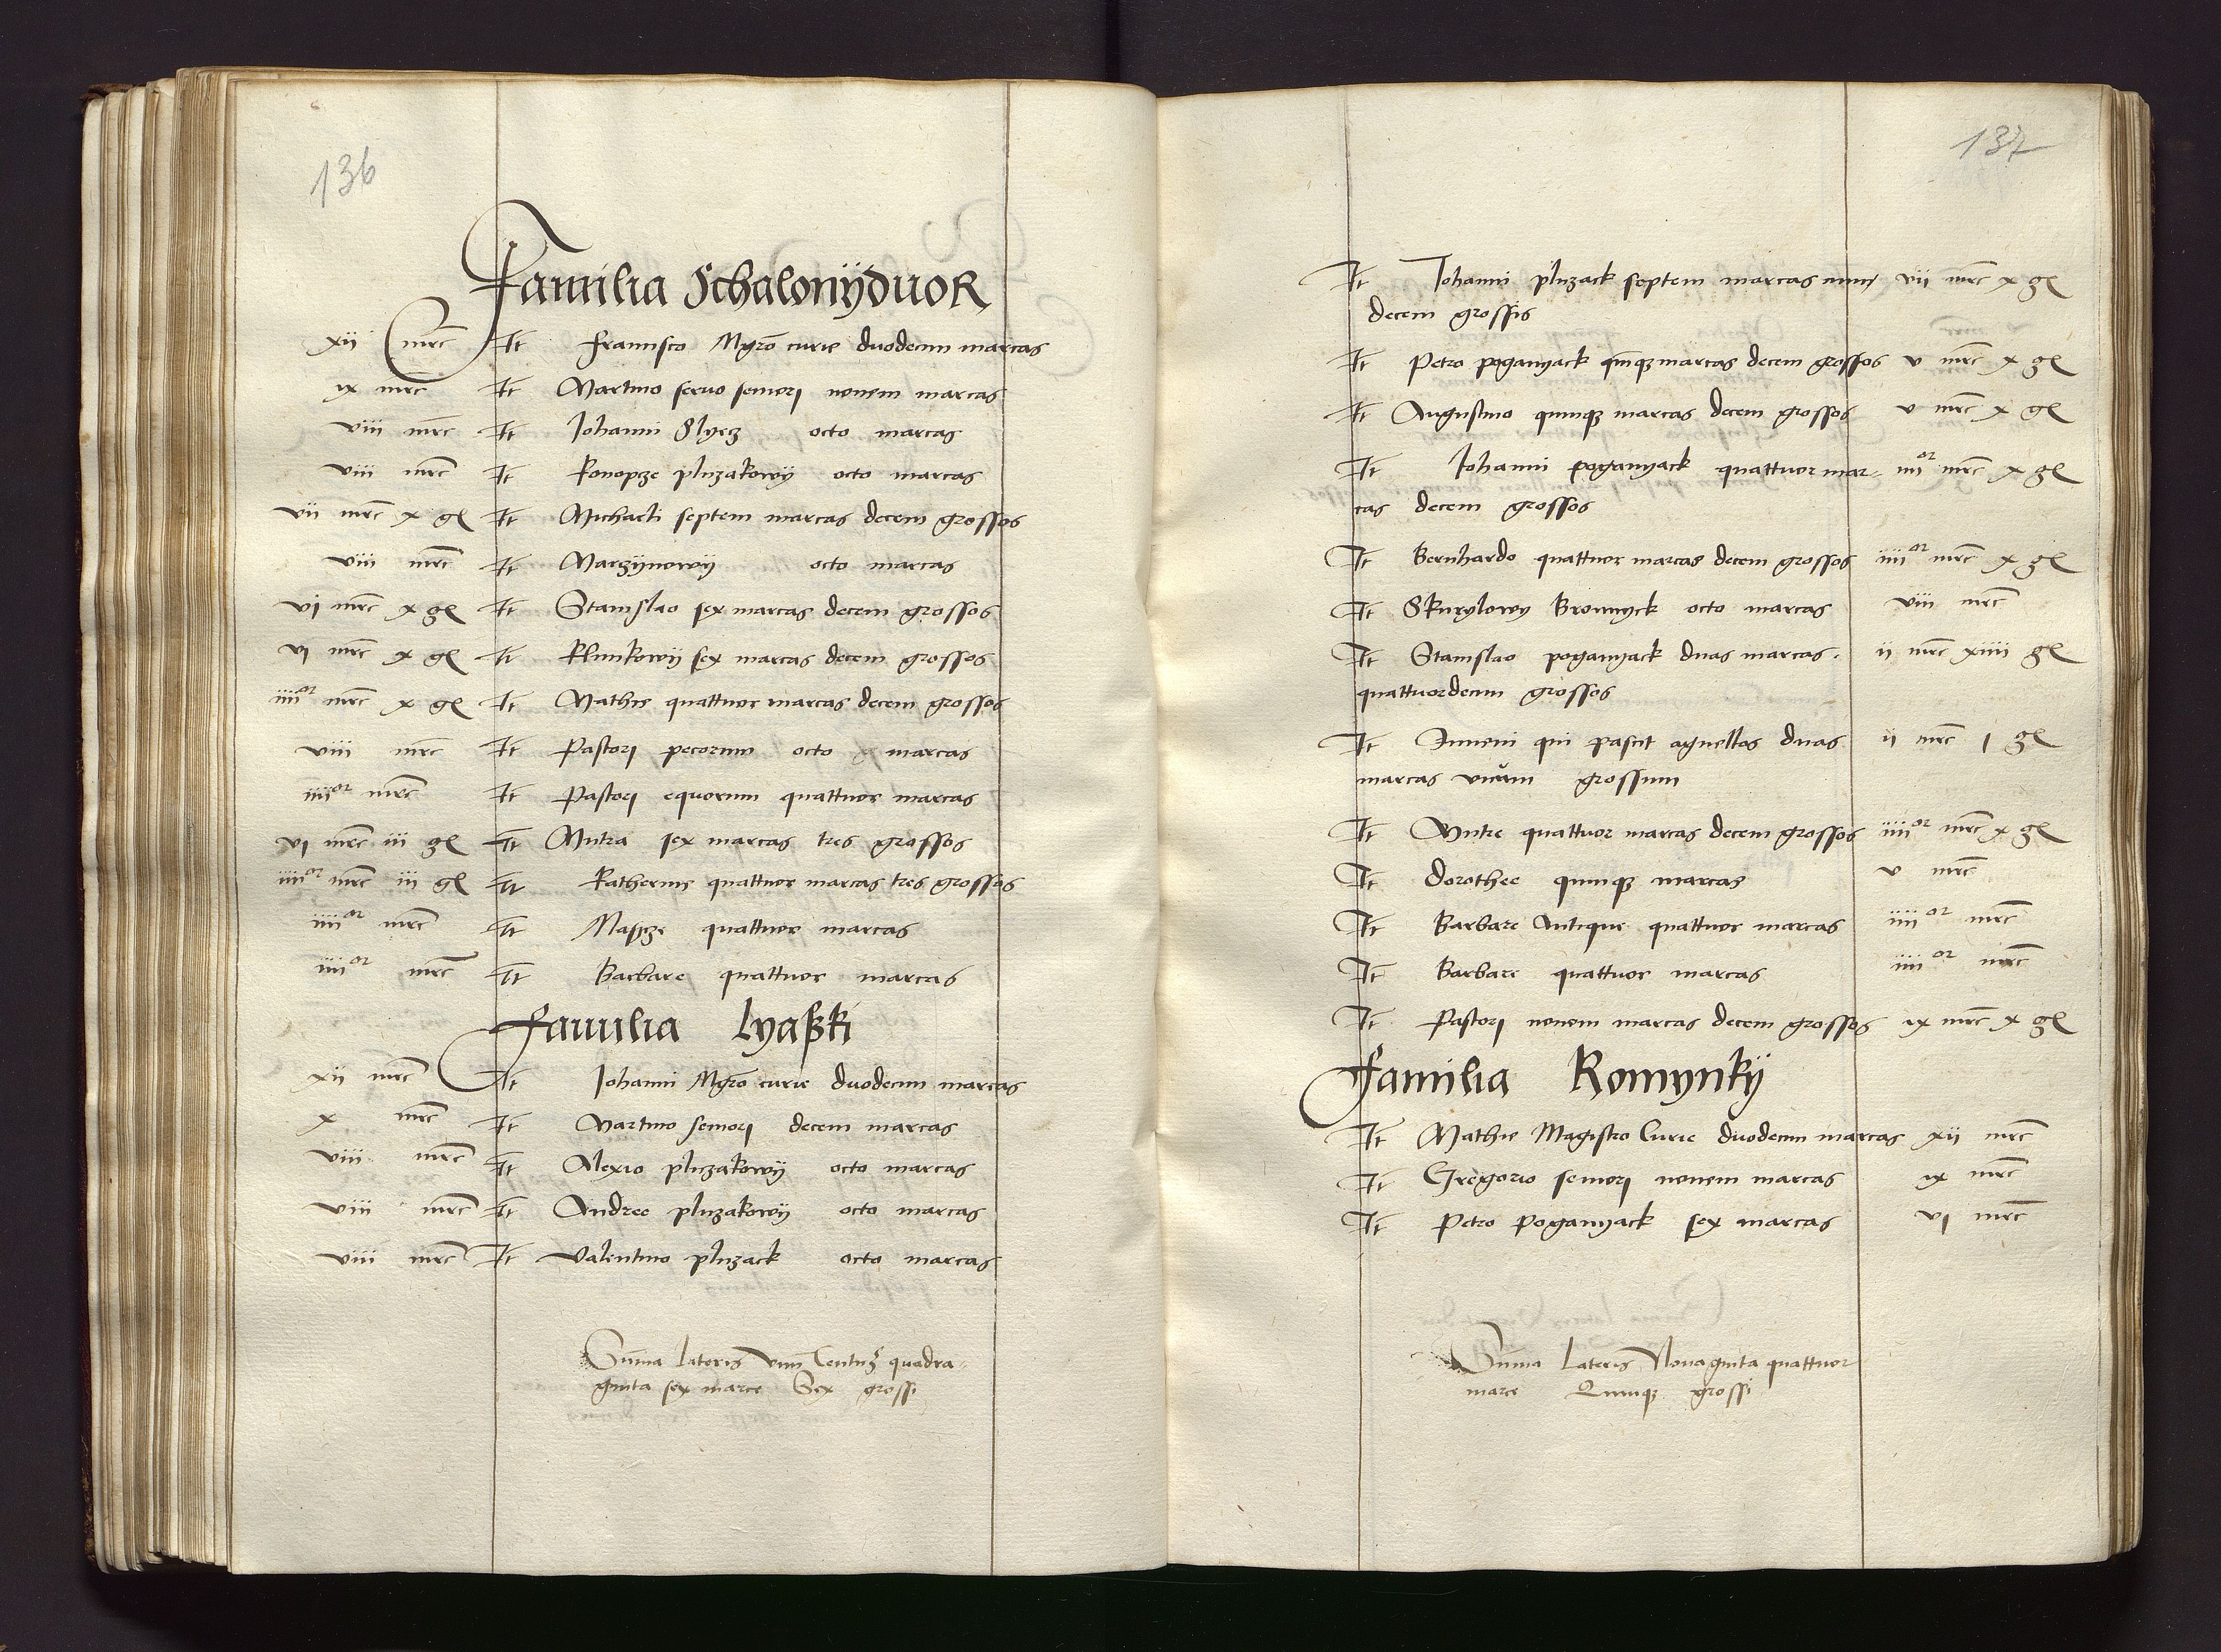 136
Familia Schalonÿduor
xii mrc It Francisco Mgro curie duodecim marcas
ix mrc It Martino servo seniorj novem marcas
viii mrc It Iohanni Slyez octo marcas
viii mrc It Konopze pluzakowÿ octo marcas
vii mrc x gl It Michaeli septem marcas decem grossos
viii mrc It Marzÿnowÿ octo marcas
vi mrc x gl It Stanislao sex marcas decem grossos
vi mrc x gl It Klimkowÿ sex marcas decem grossos
iiiior mrc x gl It Mathie quattuor marcas decem grossos
viii mrc It Pastorj pecorum octo marcas
iiiior mrc It Pastorj equorum quattuor marcas
vi mrc iii gl It sex marcas tres grossos
iiiior mrc iii gl It Katherine quattuor marcas tres grossos
iiiior mrc It quattuor marcas
iiiior mrc It Barbare quattuor marcas
Familia Lyaßki
xii mrc It Iohanni Mgro curie duodecim marcas
x mrc It Martino seniorj decem marcas
viii mrc It Alexio pluzakowÿ octo marcas
viii mrc It Andree pluzakowÿ octo marcas
viii mrc It Valentino pluzack octo marcas
Suma Lateris unum Centuz quadra-
ginta sex marce Sex grossi
137
It Iohanni pluzack septem marcas vii mrc x gl
decem grossis
It Petro poganyack quinqz marcas decem grossos v mrc x gl
It Augustino quinqz marcas decem grossos v mrc x gl
It Iohanni poganyack quattuor mar- iiiior mrc x gl
cas decem grossos
It Bernhardo quattuor marcas decem grossos iiiior mrc x gl
It Skurylowy Bronnyck octo marcas viii mrc
It Stanislao poganyack duas marcas. ii mrc xiiii gl
quattuordecim grossos
It Iuveni qui pascit agnellos duas ii mrc i gl
marcas unum grossum
It quattuor marcas decem grossos iiiior mrc x gl
It Dorothee quinqz marcas v mrc
It Barbare Antique quattuor marcas iiiior mrc
It Barbare quattuor marcas iiiior mrc
It Pastorj novem marcas decem grossos ix mrc x gl
Familia Romynkÿ
It Mathie Magistro Curie duodecim marcas xii mrc
It Gregorio seniorj novem marcas ix mrc
It Petro Poganyack sex marcas vi mrc
Suma Lateris Nonaginta quattuor
marce Quinqz grossi